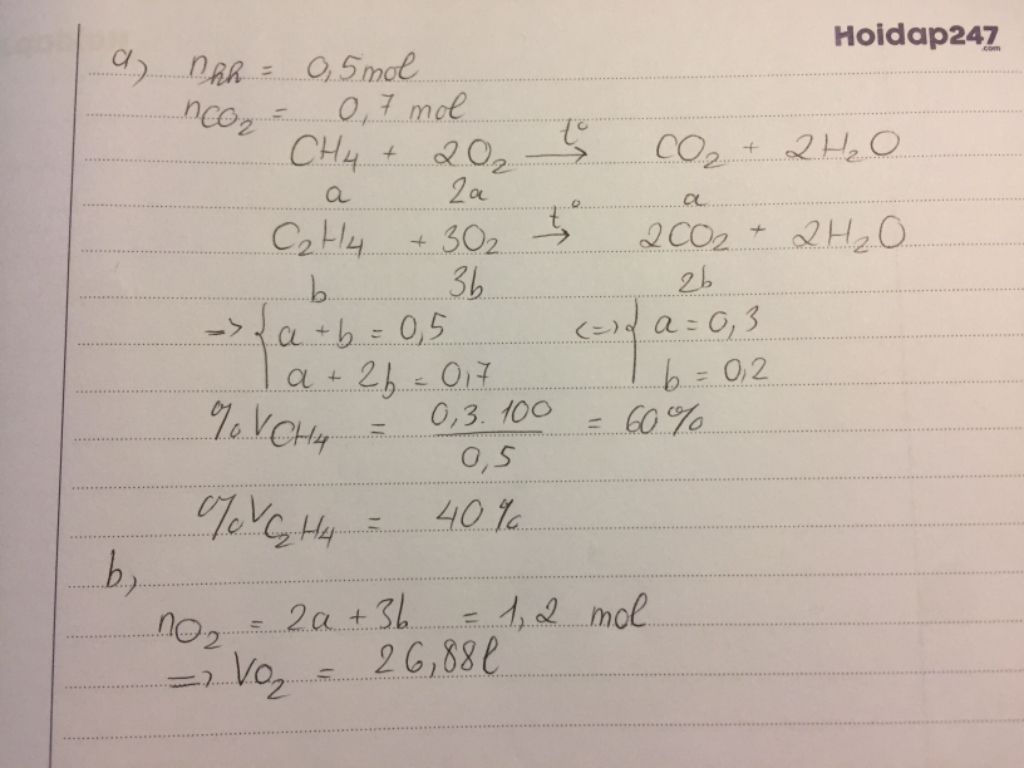 Hoidap247
.com
a) nhh = 0,5 mol
nCO2 = 0,7 mol
CH4 + 2O2 —t°→ CO2 + 2H2O
a 2a a
C2H4 + 3O2 —t°→ 2CO2 + 2H2O
b 3b 2b
=> { a + b = 0,5 <=> { a = 0,3
a + 2b = 0,7 b = 0,2
%VCH4 = 0,3.100 / 0,5 = 60%
%VC2H4 = 40%
b)
nO2 = 2a + 3b = 1,2 mol
=> VO2 = 26,88l